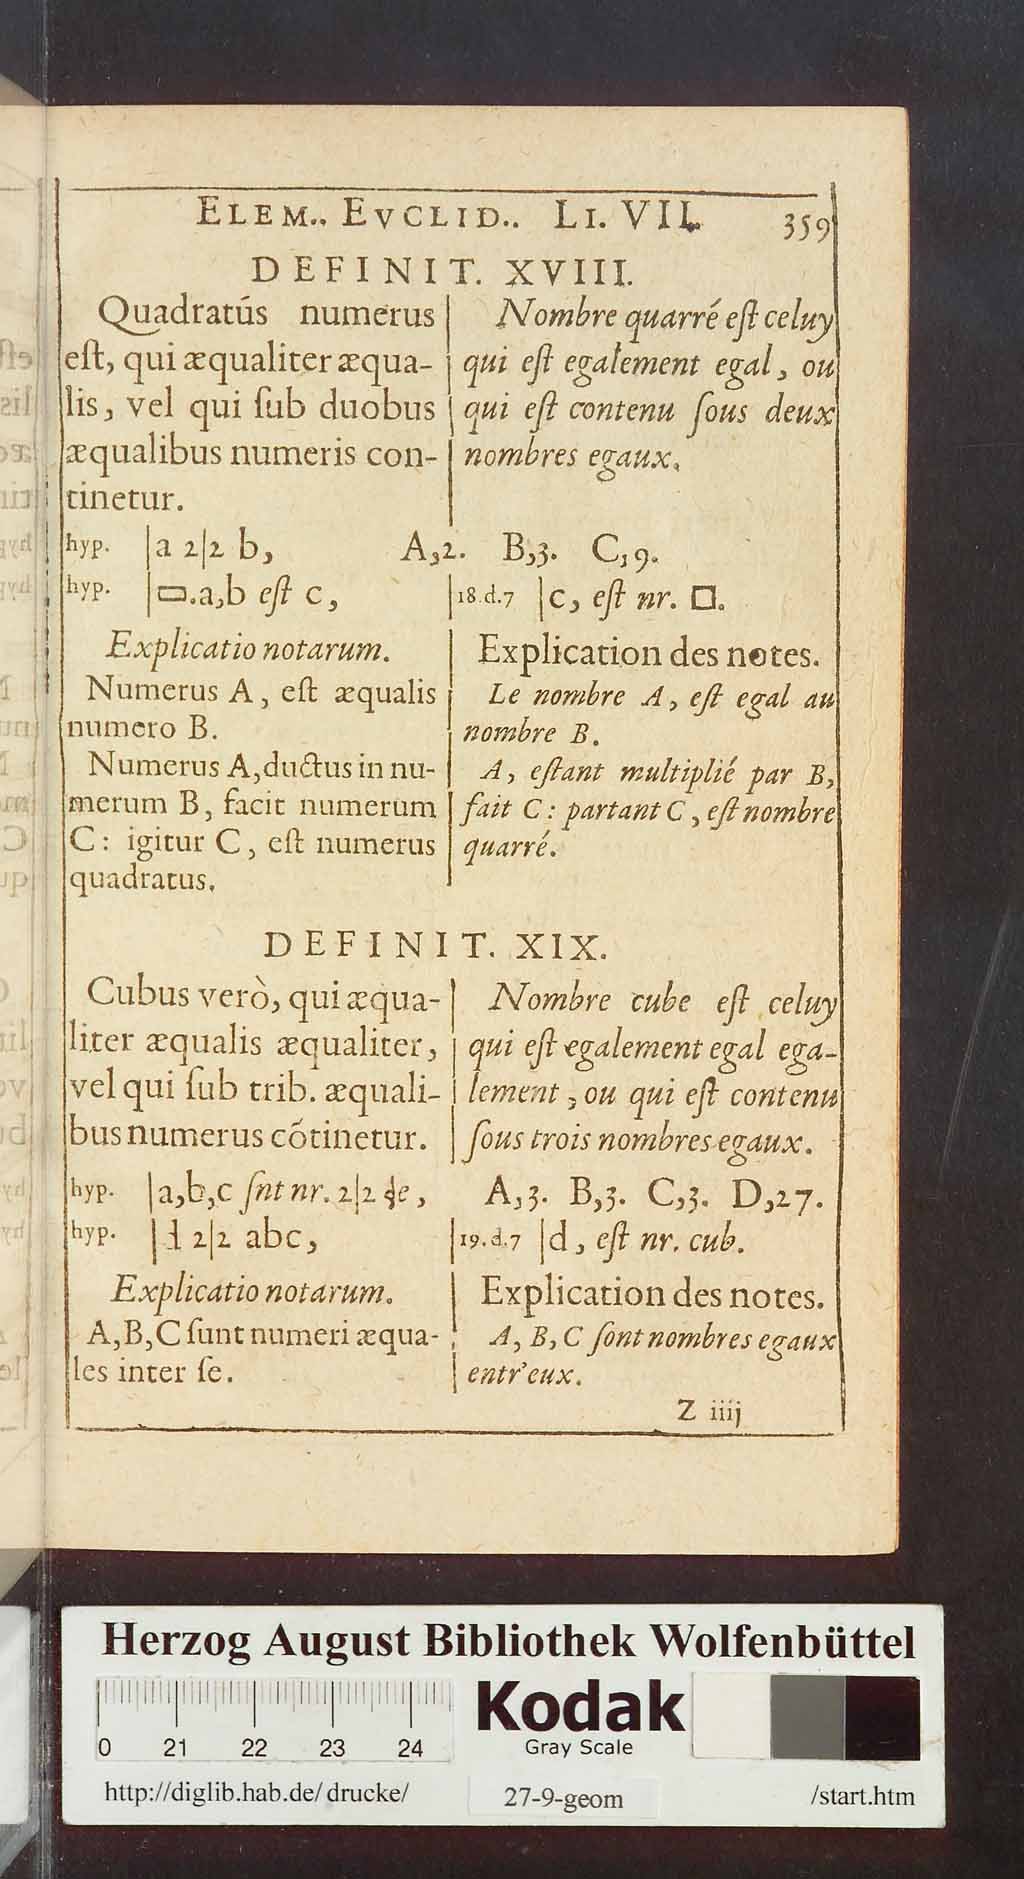 ELEM.. EVCLID.. LI. VII. 359
DEFINIT. XVIII.
Quadratús numerus
eſt, qui æqualiter æqua-
lis, vel qui ſub duobus
æqualibus numeris con-
tinetur.
Nombre quarré eſt celuy
qui eſt egalement egal, ou
qui eſt contenu ſous deux
nombres egaux.
hyp. |a 2|2 b, A,2. B,3. C,9.
hyp. |▭.a,b eſt c, |18.d.7 |c, eſt nr. □.
Explicatio notarum.
Numerus A, eſt æqualis
numero B.
Numerus A,ductus in nu-
merum B, facit numerum
C: igitur C, eſt numerus
quadratus.
Explication des notes.
Le nombre A, eſt egal au
nombre B.
A, eſtant multiplié par B,
fait C: partant C, eſt nombre
quarré.
DEFINIT. XIX.
Cubus verò, qui æqua-
liter æqualis æqualiter,
vel qui ſub trib. æquali-
bus numerus cõtinetur.
Nombre cube eſt celuy
qui eſt egalement egal ega-
lement, ou qui eſt contenu
ſous trois nombres egaux.
hyp. |a,b,c ſnt nr. 2|2 A,3. B,3. C,3. D,27.
hyp. |d 2|2 abc, |19.d.7 |d, eſt nr. cub.
Explicatio notarum.
A,B,C ſunt numeri æqua-
les inter ſe.
Explication des notes.
A, B, C ſont nombres egaux
entr'eux.
Z iiij
Herzog August Bibliothek Wolfenbüttel
Kodak
Gray Scale
0 21 22 23 24
http://diglib.hab.de/drucke/ 27-9-geom /start.htm